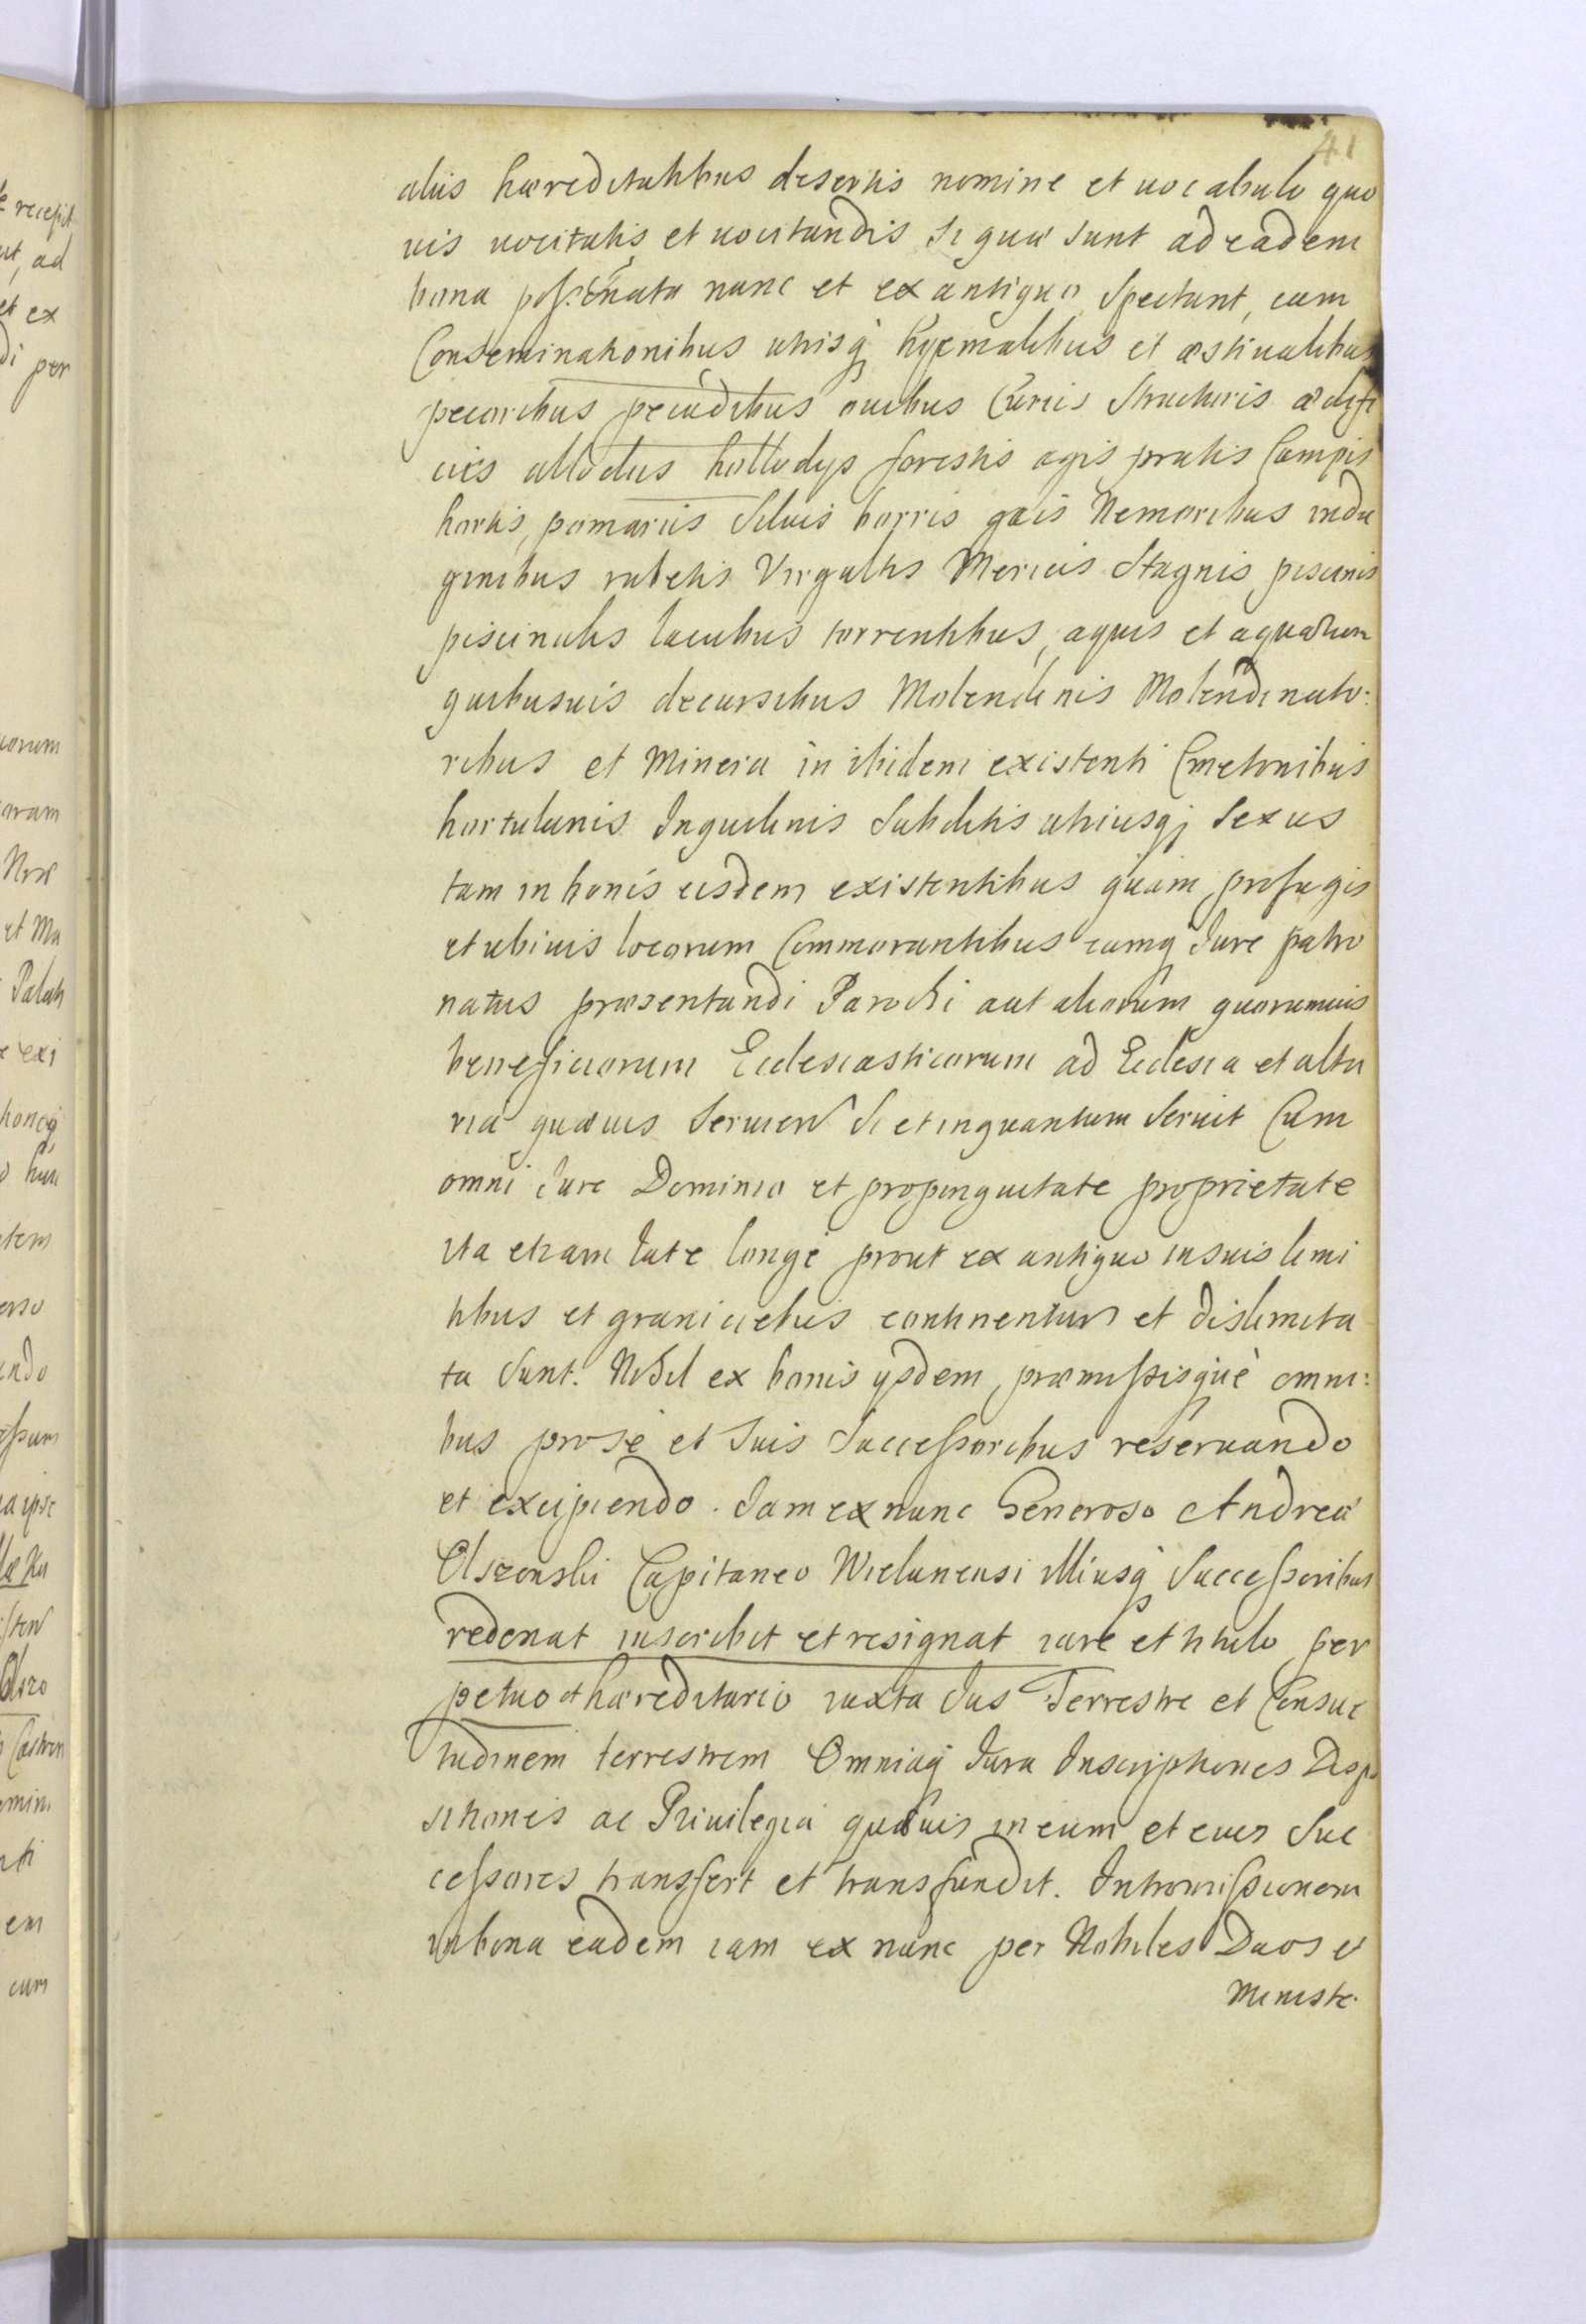 41
aliis hæreditatibus desertis nomine et uocabulo quo
uis uocitatis et uocitandis si quæ sunt ad eadem
bona post nata nunc et ex antiquo Spectant, cum
Conseminationibus utrisq hyemalibus et æstiualibus
pecoribus pecudibus ouibus Curiis Structuris ædifi
ciis allodiis hollodys forestis agis pratis Campis
hortis, pomariis Siluis borris gais Nemoribus inda
ginibus rubetis Virgultis Mericis Stagnis piscinis
piscinulis lacubus torrentibus, aquis et aquarum
quibusuis decursibus Molendinis Molendinato:
ribus et Minera in ibidem existenti Cmetonibus
hortulanis Inquilinis Subditis utriusq Sexus
tam in bonis eisdem existentibus quam profugis
et ubiuis locorum Commorantibus eamq Jure patro
natus præsentandi Parochi aut aliorum quorumuis
beneficiorum Ecclesiasticorum ad Ecclesia et alta
ria quæuis Seruien Si et inquantum Seruit Cum
omni Jure Dominio et propinquitate proprietate
ita etiam late longe prout ex antiquo in suis limi
tibus et graniciebus continentur et dislimita
ta Sunt. Nihil ex bonis ysdem præmissisque omni:
bus pro se et Suis Successoribus reseruando
et excipiendo. Jam ex nunc Generoso Andreæ
Olszonski Capitaneo Wielunensi illiusq Successoribus
redonat inscribit et resignat iure et titulo per
petuo et hæreditario iuxta Jus Terrestre et Consue
tudinem terrestrem Omniaq Jura Inscriptiones Dispo
sitiones ac Priuilegia quæuis in eum et eius Suc
cessores transfert et transfundit. Intromissionem
in bona eadem iam ex nunc per Nobiles Duos et
Ministe.
recepit
ut, ad
et ex
di per
uorum
Palat
exi
tem
erso
endo
Olszo
em
cum